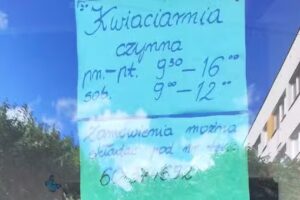 Kwiaciarnia
czynna
pn.-pt. 9³⁰-16⁰⁰
sob. 9⁰⁰-12⁰⁰
Zamówienia można
składać pod nr